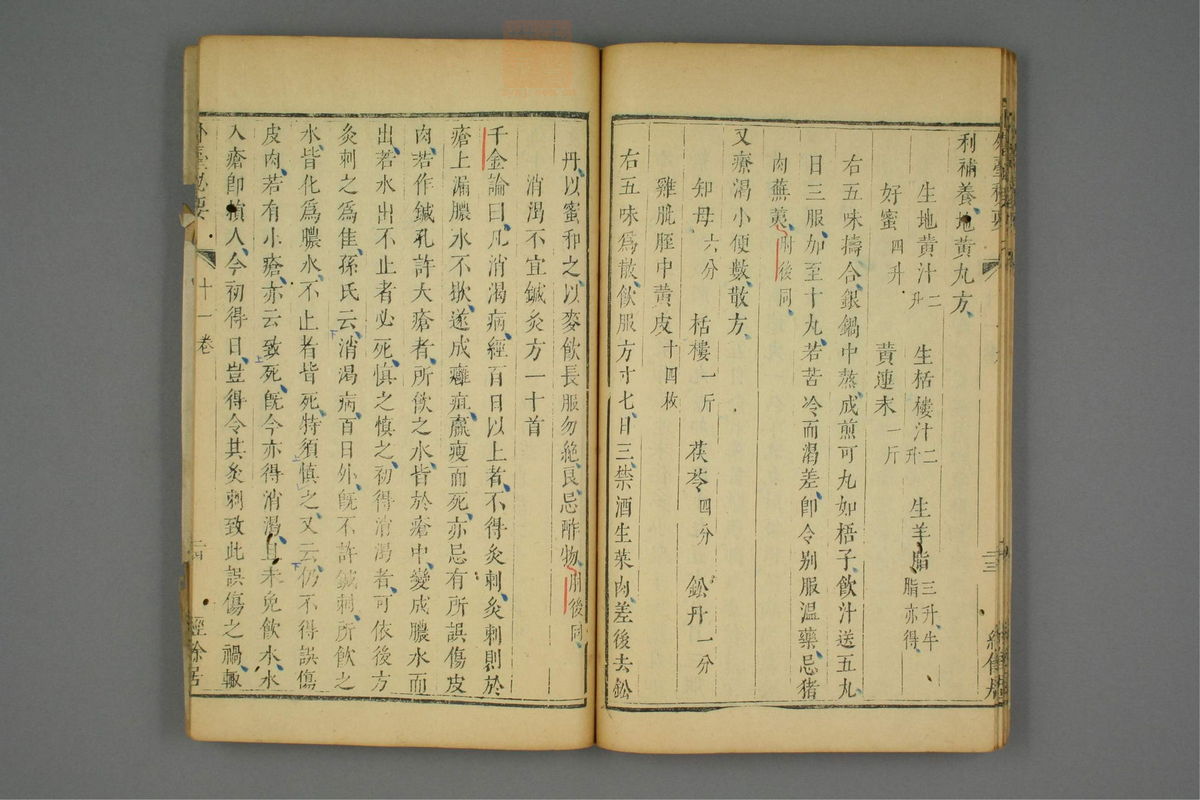 利補養地黄丸方
生地黄汁二升 生栝樓汁二升 生羊脂三升牛脂亦得
好蜜四升 黄連末一斤
右五味擣合銀鍋中蒸成煎可丸如梧子飲汁送五丸
日三服加至十丸若苦冷而渴差即令别服温藥忌猪
肉蕪荑肘後同
又療渴小便數散方
知母六分 栝樓一斤 茯苓四分 鈆丹一分
雞肶胵中黄皮十四枚
右五味爲散飲服方寸匕日三禁酒生菜肉差後去鈆
丹以蜜和之以麥飲長服勿絶良忌酢物肘後同
消渴不宜鍼灸方一十首
千金論曰凡消渴病經百日以上者不得灸刺灸刺則於
瘡上漏膿水不歇遂成癰疽羸瘦而死亦忌有所誤傷皮
肉若作鍼孔許大瘡者所飲之水皆於瘡中變成膿水而
出若水出不止者必死慎之慎之初得消渴者可依後方
灸刺之爲佳孫氏云消渴病百日外既不許鍼刺所飲之
水皆化爲膿水不止者皆死特須慎之又云仍不得誤傷
皮肉若有小瘡亦云致死既今亦得消渴且未免飲水水
入瘡即損人今初得日豈得令其灸刺致此誤傷之禍輒
外臺秘要 十一卷 經餘居